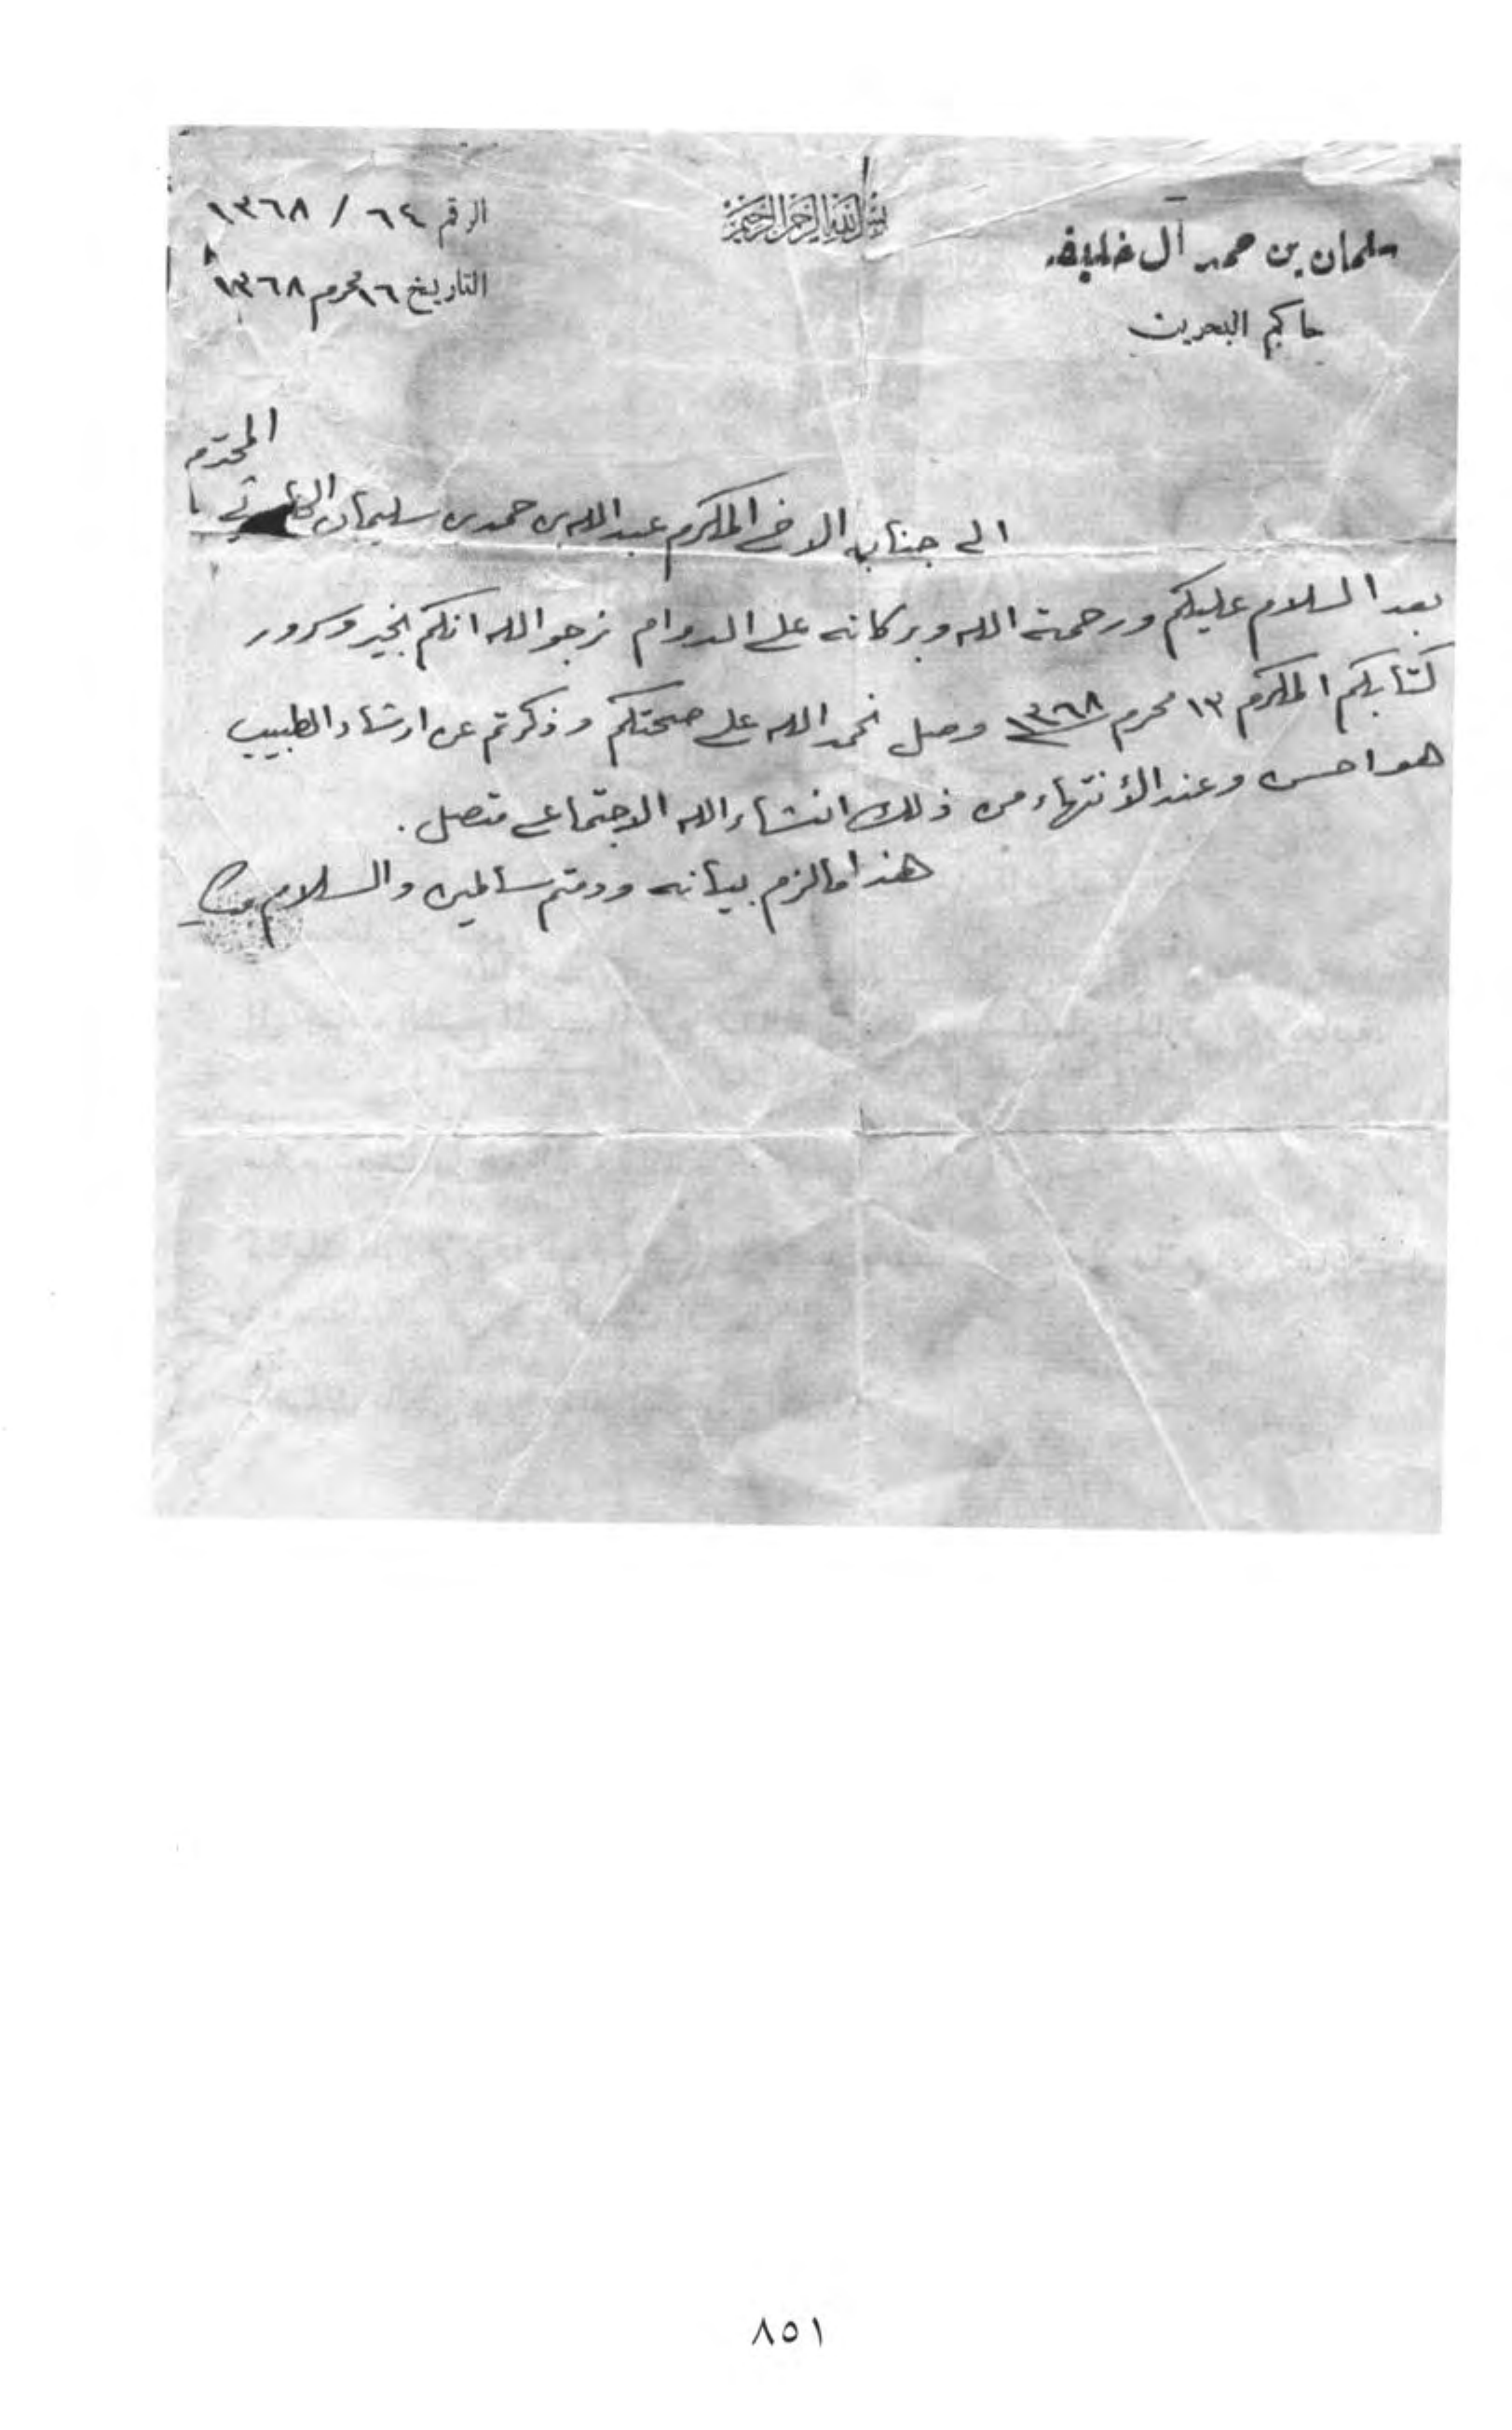 سلمان بن حمد آل خليفه
حاكم البحرين
بسم الله الرحمن الرحيم
الرقم ٦٤ / ١٣٦٨
التاريخ ١٦ محرم ١٣٦٨
المحترم
الى جناب الاخ المكرم عبدالله بن حمد بن سليمان
بعد السلام عليكم ورحمة الله وبركاته على الدوام نرجو الله انكم بخير وسرور
كتابكم المكرم ١٣ محرم ١٣٦٨ وصل نحمد الله على صحتكم وذكرتم عن ارشاد الطبيب
هو احسن وعند الأنتهاء من ذلك انشاء الله الاجتماع متصل .
هذا مالزم بيانه ودمتم سالمين والسلام
٨٥١